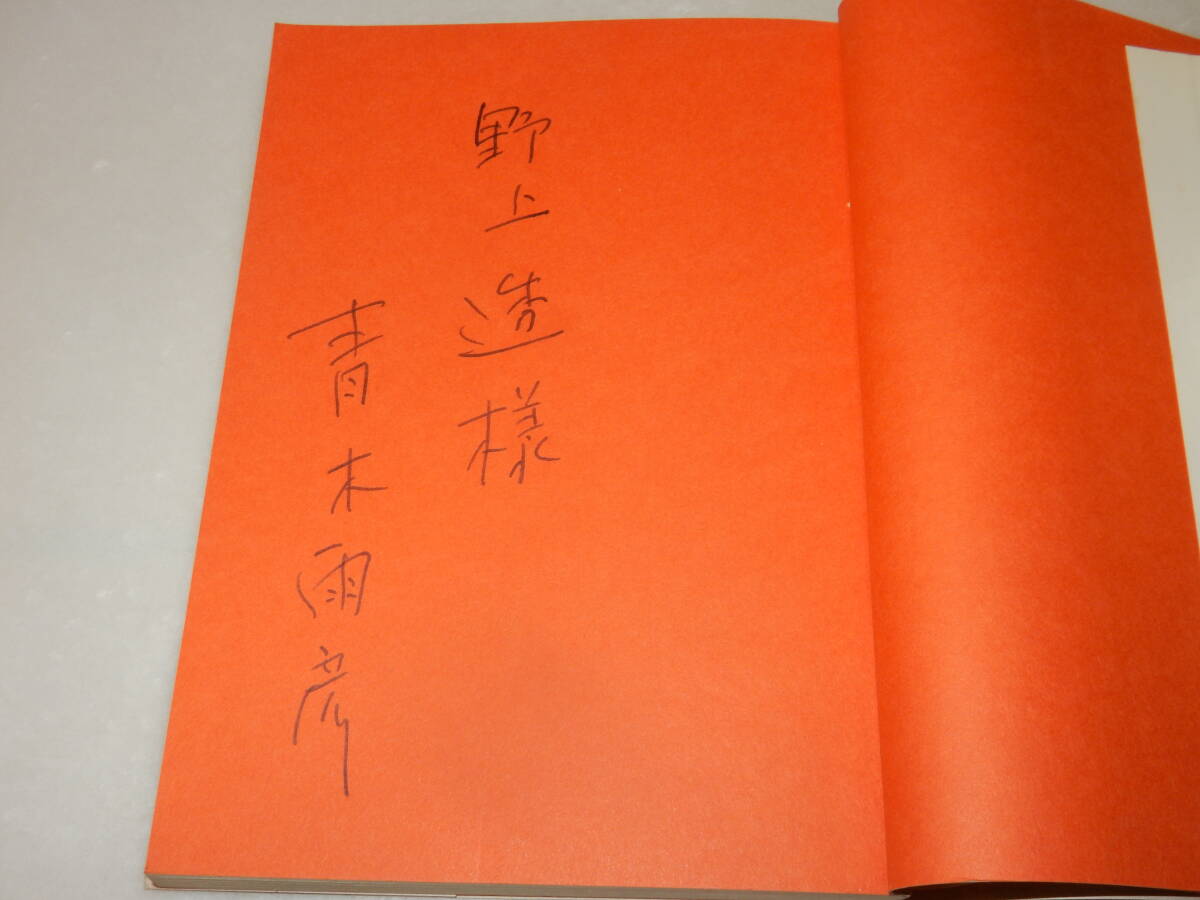 野上造様
青木雨彦